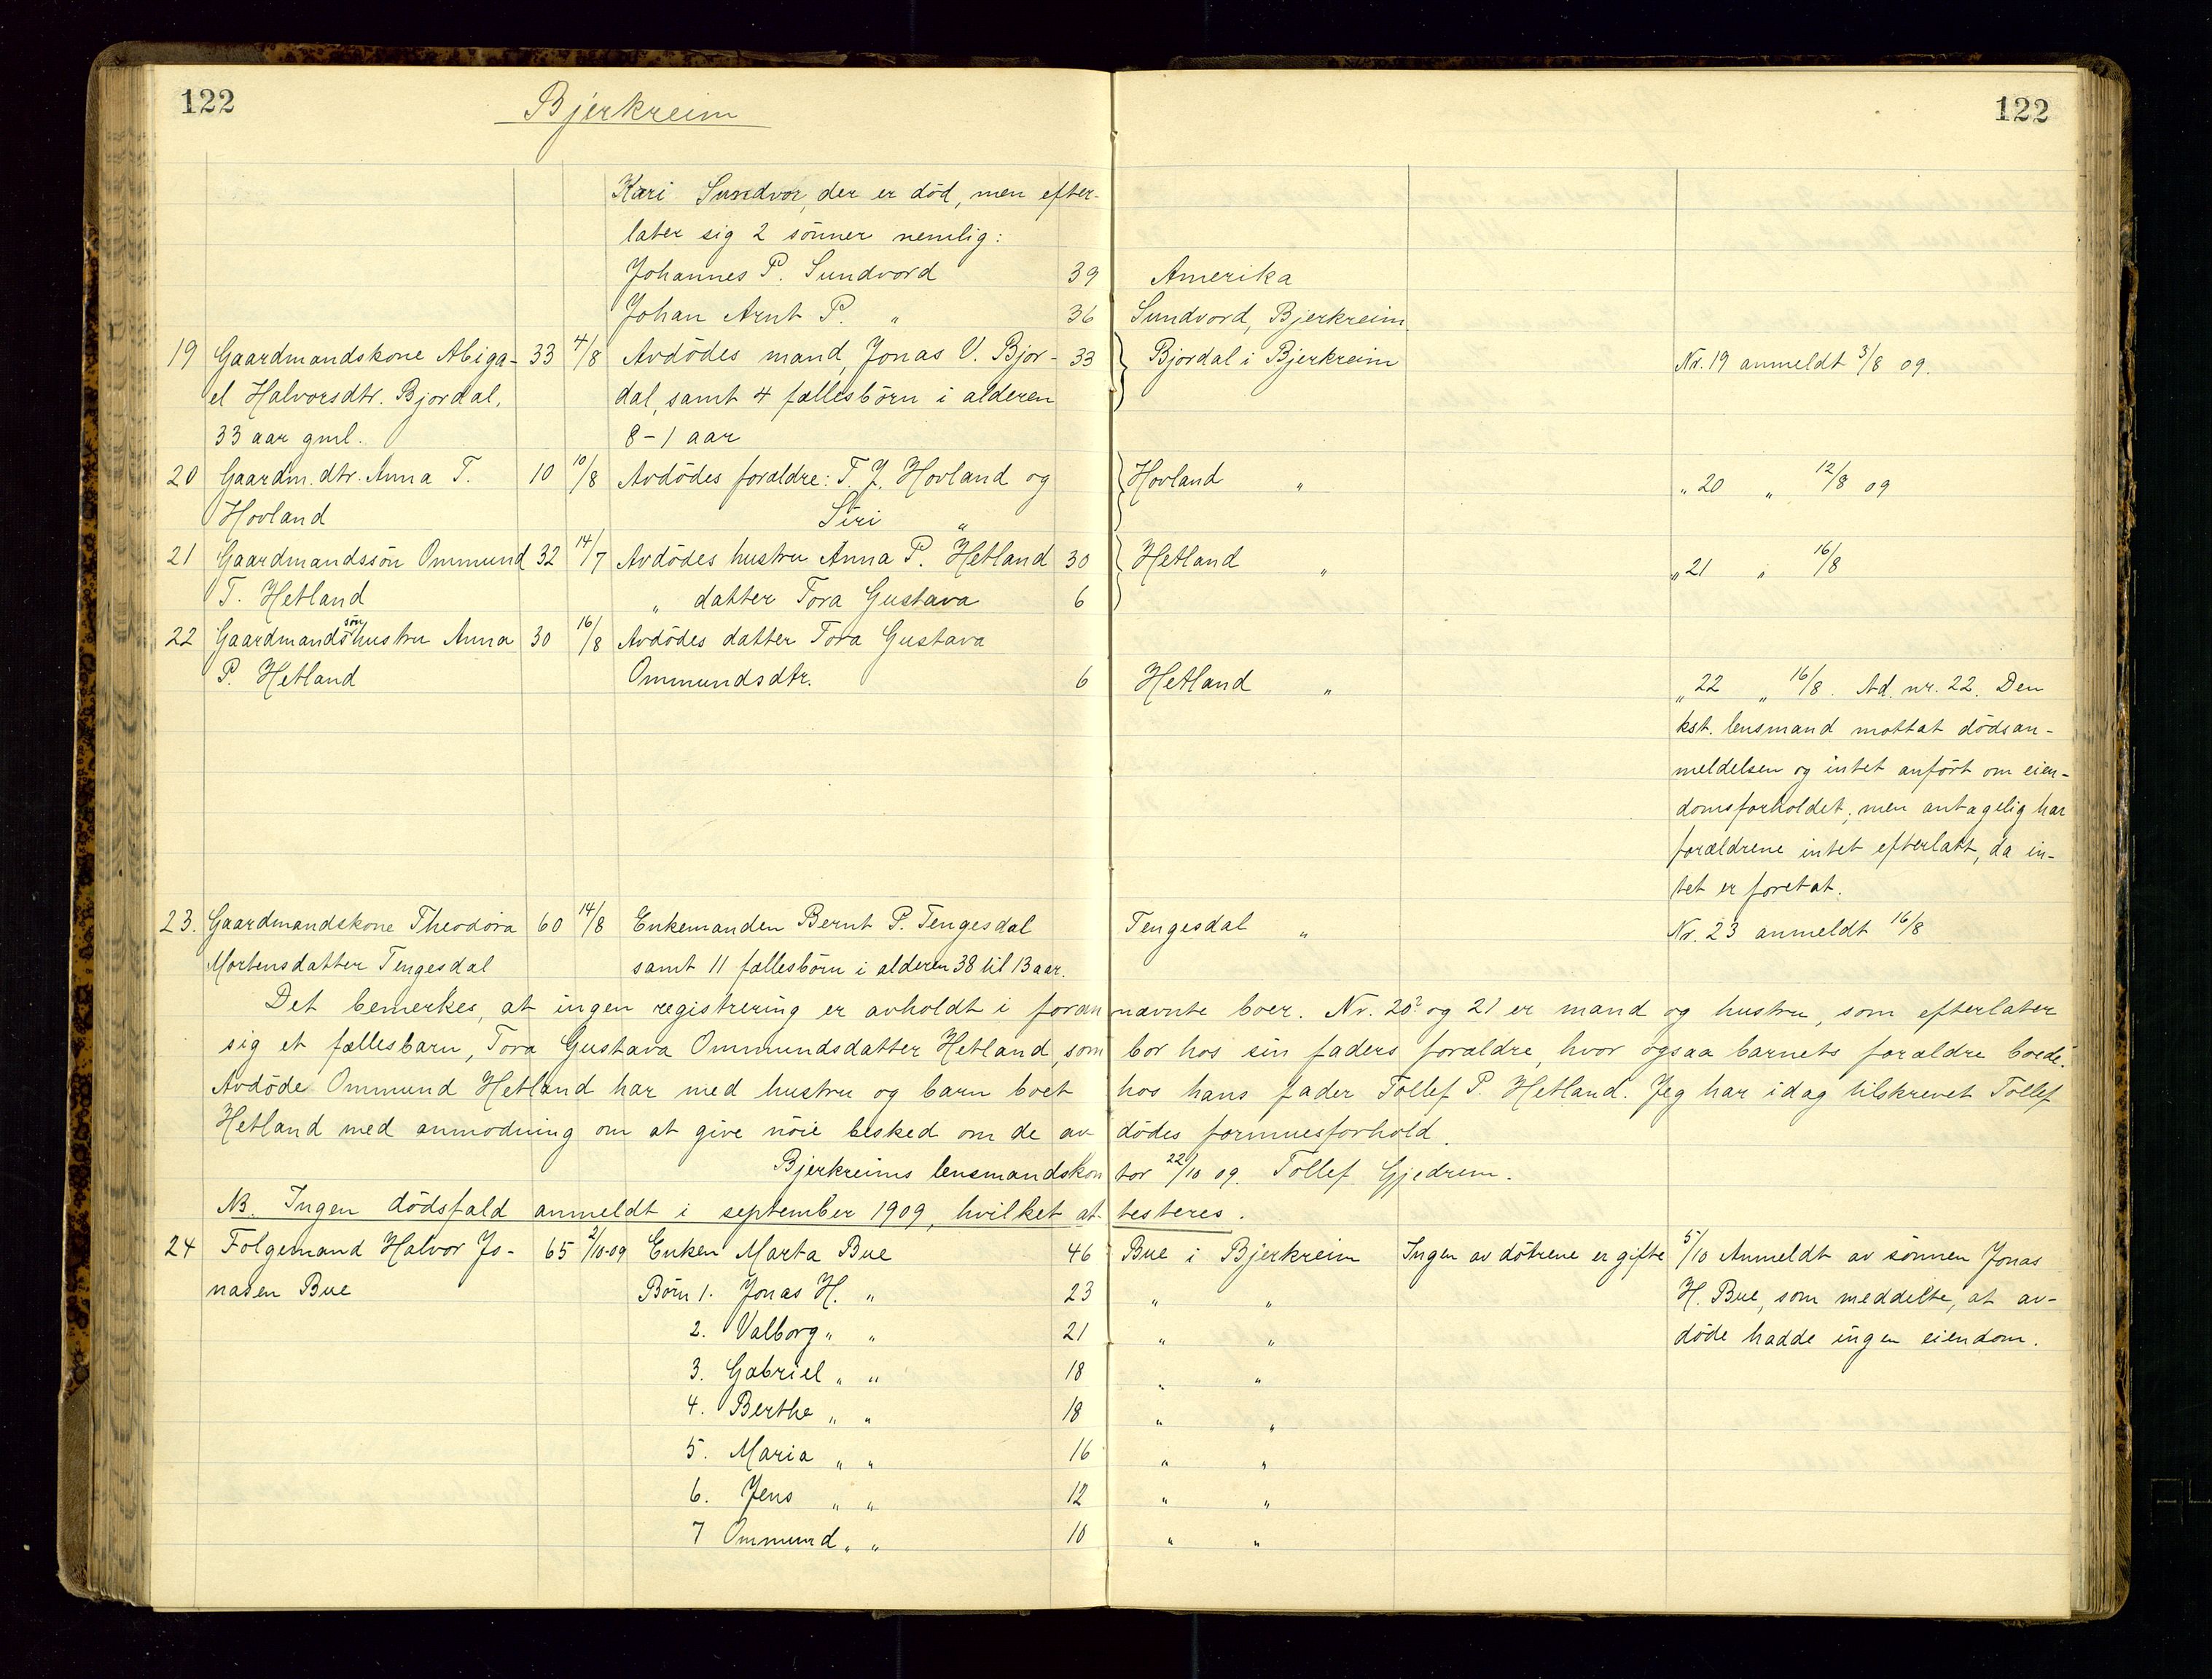 122
Bjerkreim
122
Kari Sundvor, der er död, men efter-
later sig 2 sönner nemlig:
Johannes P. Sundvord 39 Amerika
Johan Arnt P. " 36 Sundvord, Bjerkreim
19 Gaardmandskone Abiga- 33 4/8 Avdödes mand, Jonas V. Bjor- 33 Bjordal i Bjerkreim Nr. 19 anmeldt 3/8 09.
el Halvorsdtr. Bjordal, dal, samt 4 fællesbörn i alderen
33 aar gml. 8-1 aar
20 Gaardm. dtr. Anna T. 10 10/8 Avdödes forældre: T. J. Hovland og Hovland " " 20 " 12/8 09
Hovland Siri "
21 Gaardmandssön Ommund 32 14/7 Avdödes hustru Anna P. Hetland 30 Hetland " " 21 " 16/8
T. Hetland " datter Tora Gustava 6
22 Gaardmandssönhustru Anna 30 16/8 Avdödes datter Tora Gustava
P. Hetland Ommundsdtr. 6 Hetland " " 22 " 16/8. Ad. nr. 22. Den
kst. lensmand mottat dödsan-
meldelsen og intet anfört om eien-
domsforholdet, men antagelig har
forældrene intet efterlatt, da in-
tet er foretat.
23. Gaardmandskone Theodora 60 14/8 Enkemanden Bernt P. Tengesdal Tengesdal " Nr. 23 anmeldt 16/8
Mortensdatter Tengesdal samt 11 fællesbörn i alderen 38 til 13 aar.
Det bemerkes, at ingen registrering er avholdt i forannævnte boer. Nr. 20? og 21 er mand og hustru, som efterlater
sig et fællesbarn, Tora Gustava Ommundsdatter Hetland, som bor hos sin faders forældre, hvor ogsaa barnets forældre boede.
Avdöde Ommund Hetland har med hustru og barn boet hos hans fader Tollef P. Hetland. Jeg har idag tilskrevet Tollef
Hetland med anmodning om at give nöie besked om de avdödes formuesforhold.
Bjerkreims lensmandskontor 22/10 09. Tollef Gjedrem.
NB. Ingen dödsfald anmeldt i september 1909, hvilket attesteres.
24 Folgemand Halvor Jo- 65 2/10-09 Enken Marta Bue 46 Bue i Bjerkreim Ingen av döttrene er gifte 5/10 Anmeldt av sönnen Jonas
nasen Bue Börn 1. Jonas H. " 23 " " H. Bue, som meddelte, at av-
2. Valborg " " 21 " " döde hadde ingen eiendom.
3. Gabriel " " 18 " "
4. Berthe " " 18 " "
5. Maria " " 16 " "
6. Jens " " 12 " "
7 Ommund " " 10 " "